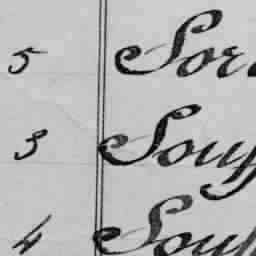 5 Sor
3 Souf
4 Souf